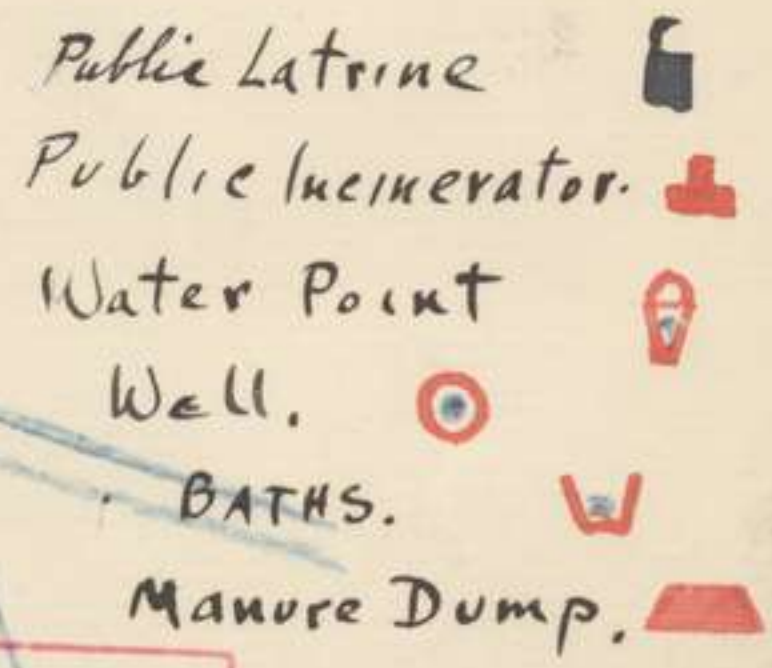 Public Latrine
Public Incinerator.
Water Point
Well.
BATHS.
Manure Dump.